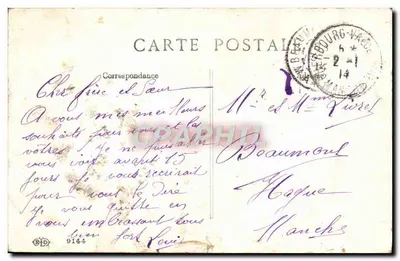 CARTE POSTALE
Correspondance
Cher frère et Sœur
A vous mes meilleurs
souhaits pour vous et les
vôtres. Je ne puis aller
vous voir avant 15
jours Je vous recrirait
pour vous le dire
Je vous quitte en
vous embrassant tous
bien fort Louis
ELD 9144
CHERBOURG-
5*
2-1
14
Mr et Mme
Beaumont
Hague
Manche